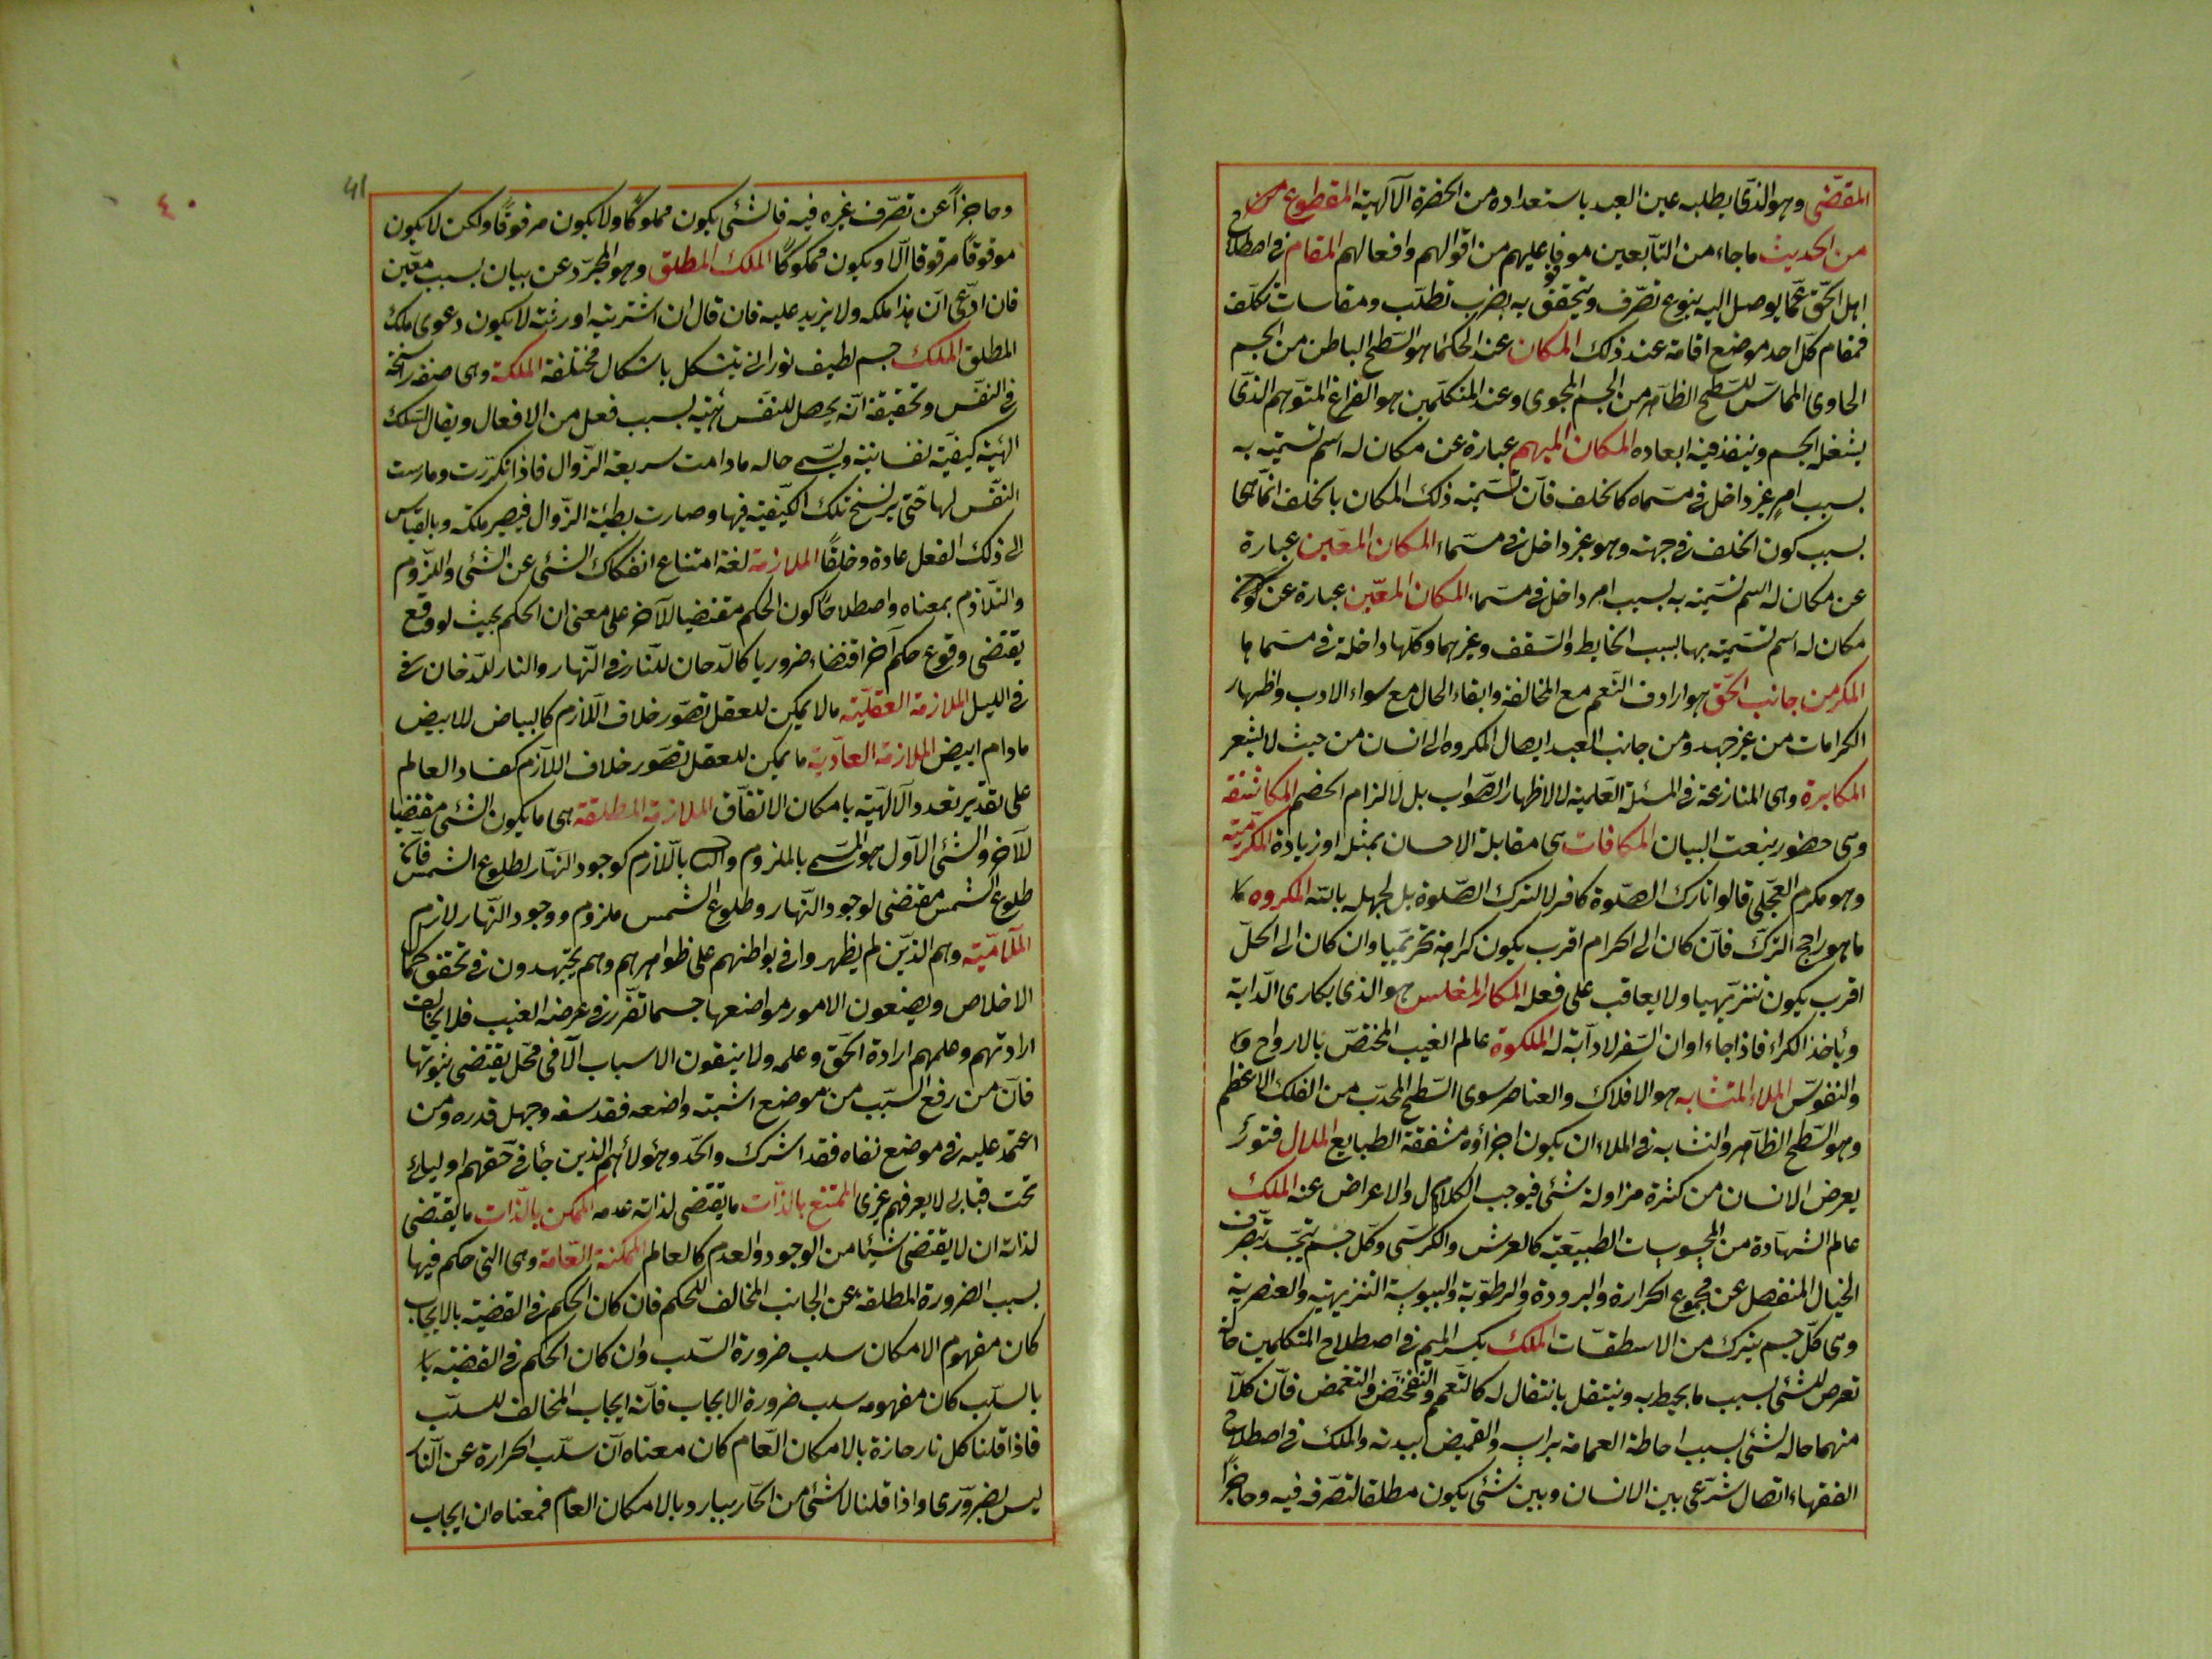 المقتضى وهو الذى يطلبه عين العبد باستعداده من الحضرة الآلهية المقطوع من
من الحديث ما جاء من التابعين موقوفا عليهم من اقوالهم وافعالهم المقام فى اصطلاح
اهل الحق عما يوصل اليه بنوع تصرف ويتحقق به بضرب تطلب ومقاسات تكلف
فمقام كل احد موضع اقامة عند ذلك المكان عند الحكما هو السطح الباطن من الجسم
الحاوى المماس للسطح الظاهر من الجسم المحوى وعند المتكلمين هو الفراغ المتوهم الذى
يشغله الجسم وينفذ فيه ابعاده المكان المبهم عبارة عن مكان له اسم تسميته به
بسبب امر غير داخل فى مسماه كالخلف فان تسميته ذلك المكان بالخلف انما هى
بسبب كون الخلف فى جهته وهو غير داخل فى مسماء المكان المعين عبارة
عن مكان له اسم تسميته به بسبب امر داخل فى مسماء المكان المعين عبارة عن
مكان له اسم تسميته بها بسبب الحايط والسقف وغيرهما وكلها داخلة فى مسماها
المكر من جانب الحق هو ارادف النعم مع المخالفة وابقاء الحال مع سواء الادب واظهار
الكرامات من غير جهد ومن جانب العبد ايصال المكروه الى انسان من حيث لا يشعر
المكابرة وهى المنازعة فى المسئلة العلمية لا لاظهار الصواب بل لالزام الخصم المكاشفة
وهى حضور ينعت البيان المكافات هى مقابلة الاحسان بمثله او زيادة المكرمية
وهو مكرم العجلى قالوا تارك الصلوة كافر لا لترك الصلوة بل لجهله بالله المكروه
ما هو راجح الترك فان كان الى الحرام اقرب يكون كراهة تحريميا وان كان الى الحل
اقرب يكون تنزيهيا ولا يعاقب على فعله المكار المفلس هو الذى يكارى الدابة
ويأخذ الكراء فاذا جاء اوان السفر لا دآبة له الملكوة عالم الغيب المختص بالارواح وا
والنفوس الملاء المتشابه هو الافلاك والعناصر سوى السطح المحدب من الفلك الاعظم
وهو السطح الظاهر والتشابه فى الملاء ان يكون اجزاؤه متفقة الطبايع الملال فتور
يعرض الانسان من كثرة مزاولة شئى فيوجب الكلال والاعراض عنه الملك
عالم الشهادة من المحسوسات الطبيعية كالعرش والكرسى وكل جسم يتجسد بتصرف
الخيال المنفصل عن مجموع الحرارة والبرودة والرطوبة واليبوسة التنزيهية والعنصرية
وهى كل جسم يترك من الاسطقسات الملك بكسر الميم فى اصطلاح المتكلمين حالة
تعرض للشئى بسبب ما يحيط به وينتقل بانتقال له كالتعمم والتقمص فان كلا
منهما حالة لشئى بسبب احاطة العمامة براسه والقميص ببدنه والملك فى اصطلاح
الفقهاء اتصال شرعى بين الانسان وبين شئى يكون مطلقا لتصرفه فيه وحاجزا
41
٤٠
وحاجزا عن تصرف غيره فيه فالشئى يكون مملوكا ولا يكون مرقوقا ولكن لا يكون
موقوقا مرقوقا الا ويكون مملوكا الملك المطلق وهو المجرد عن بيان سبب معين
فان ادعى ان هذا ملكه ولا يزيد عليه فان قال ان اشتريته او رثته لا يكون دعوى ملك
المطلق الملك جسم لطيف نورانى يتشكل باشكال مختلفة الملكة وهى صفة راسخة
فى النفس وتحقيقه انه يحصل للنفس هئية بسبب فعل من الافعال ويقال لتلك
الهئية كيفية نفسانية ويسمى حاله ما دامت سريعة الزوال فاذا تكررت ومارست
النفس لها حتى يرسخ تلك الكيفية فيها وصارت بطيئة الزوال فيصير ملكة وبالقياس
الى ذلك الفعل عادة وخلقا الملازمة لغة امتناع انفكاك الشئى عن الشئى واللزوم
والتلازم بمعناه واصطلاحا كون الحكم مقتضيا للآخر على معنى ان الحكم بحيث لو وقع
يقتضى وقوع حكم آخر اقتضاء ضروريا كالدخان للنار فى النهار والنار للدخان فى
فى الليل الملازمة العقلية ما لا يمكن للعقل تصور خلاف اللازم كالبياض للابيض
مادام ابيض الملازمة العادية ما يمكن للعقل تصور خلاف اللازم كفساد العالم
على تقدير تعدد الآلهية بامكان الاتفاق الملازمة المطلقة هى ما يكون الشئى مقتضيا
للآخر والشئى الاول هو المسمى بالملزوم والثانى باللازم كوجود النهار لطلوع الشمس فان
طلوع الشمس مقتضى لوجود النهار وطلوع الشمس ملزوم ووجود النهار لازم
الملامية وهم الذين لم يظهروا فى بواطنهم على ظواهرهم وهم يجتهدون فى تحقق كما
الاخلاص ويضعون الامور مواضعها حسما تقرر فى عرضه الغيب فلا يخالف
ارادتهم وعلمهم ارادة الحق وعلمه ولا ينفون الاسباب الا فى محل يقتضى ثبوتها
فان من رفع السبب من موضع اشبته واضعه فقد سفه وجهل قدره ومن
اعتمد عليه فى موضع نفاه فقد اشرك والحد وهؤلائهم الذين جأ فى حقهم اوليائى
تحت قبابى لا يعرفهم غيرى الممتنع بالذات ما يقتضى لذاته عدمه الممكن بالذات ما يقتضى
لذاته ان لا يقتضى شيئا من الوجود والعدم كالعالم الممكنة العامة وهى التى حكم فيها
بسبب الضرورة المطلقة عن الجانب المخالف للحكم فان كان الحكم فى القضية بالايجاب
كان مفهوم الامكان سلب ضرورة السلب وان كان الحكم فى القضية با
بالسلب كان مفهومه سلب ضرورة الايجاب فانه ايجاب المخالف للسلب
فاذا قلنا كل نار حارة بالامكان العام كان معناه ان سلب الحرارة عن النار
ليس بضرورى واذا قلنا لا شئى من الحار ببارد بالامكان العام فمعناه ان ايجاب